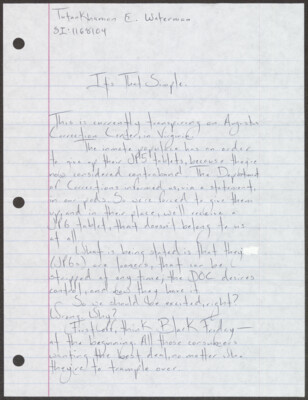 Tutankhamon E. Waterman
SI-1168104
It's That Simple.
This is currently transpiring on Augusta
Correction Center in Virginia.
The inmate population has an order
to give up their JP5 tablets, because they're
now considered contraband. The Department
of Corrections informed us, via a statement,
on our pods. So we're forced to give them
up, and in their place, we'll receive a
JP6 tablet, that doesn't belong to us
at all.
What is being stated is that they
(JP6s) are loaners, that can be
stripped of any time the DOC desires
control, and you they base it
So we should be excited, right?
Wrong. Why?
First ball, think Black Friday—
at the beginning. All those consumers
wanting the best deal, no matter who
they're to trample over.